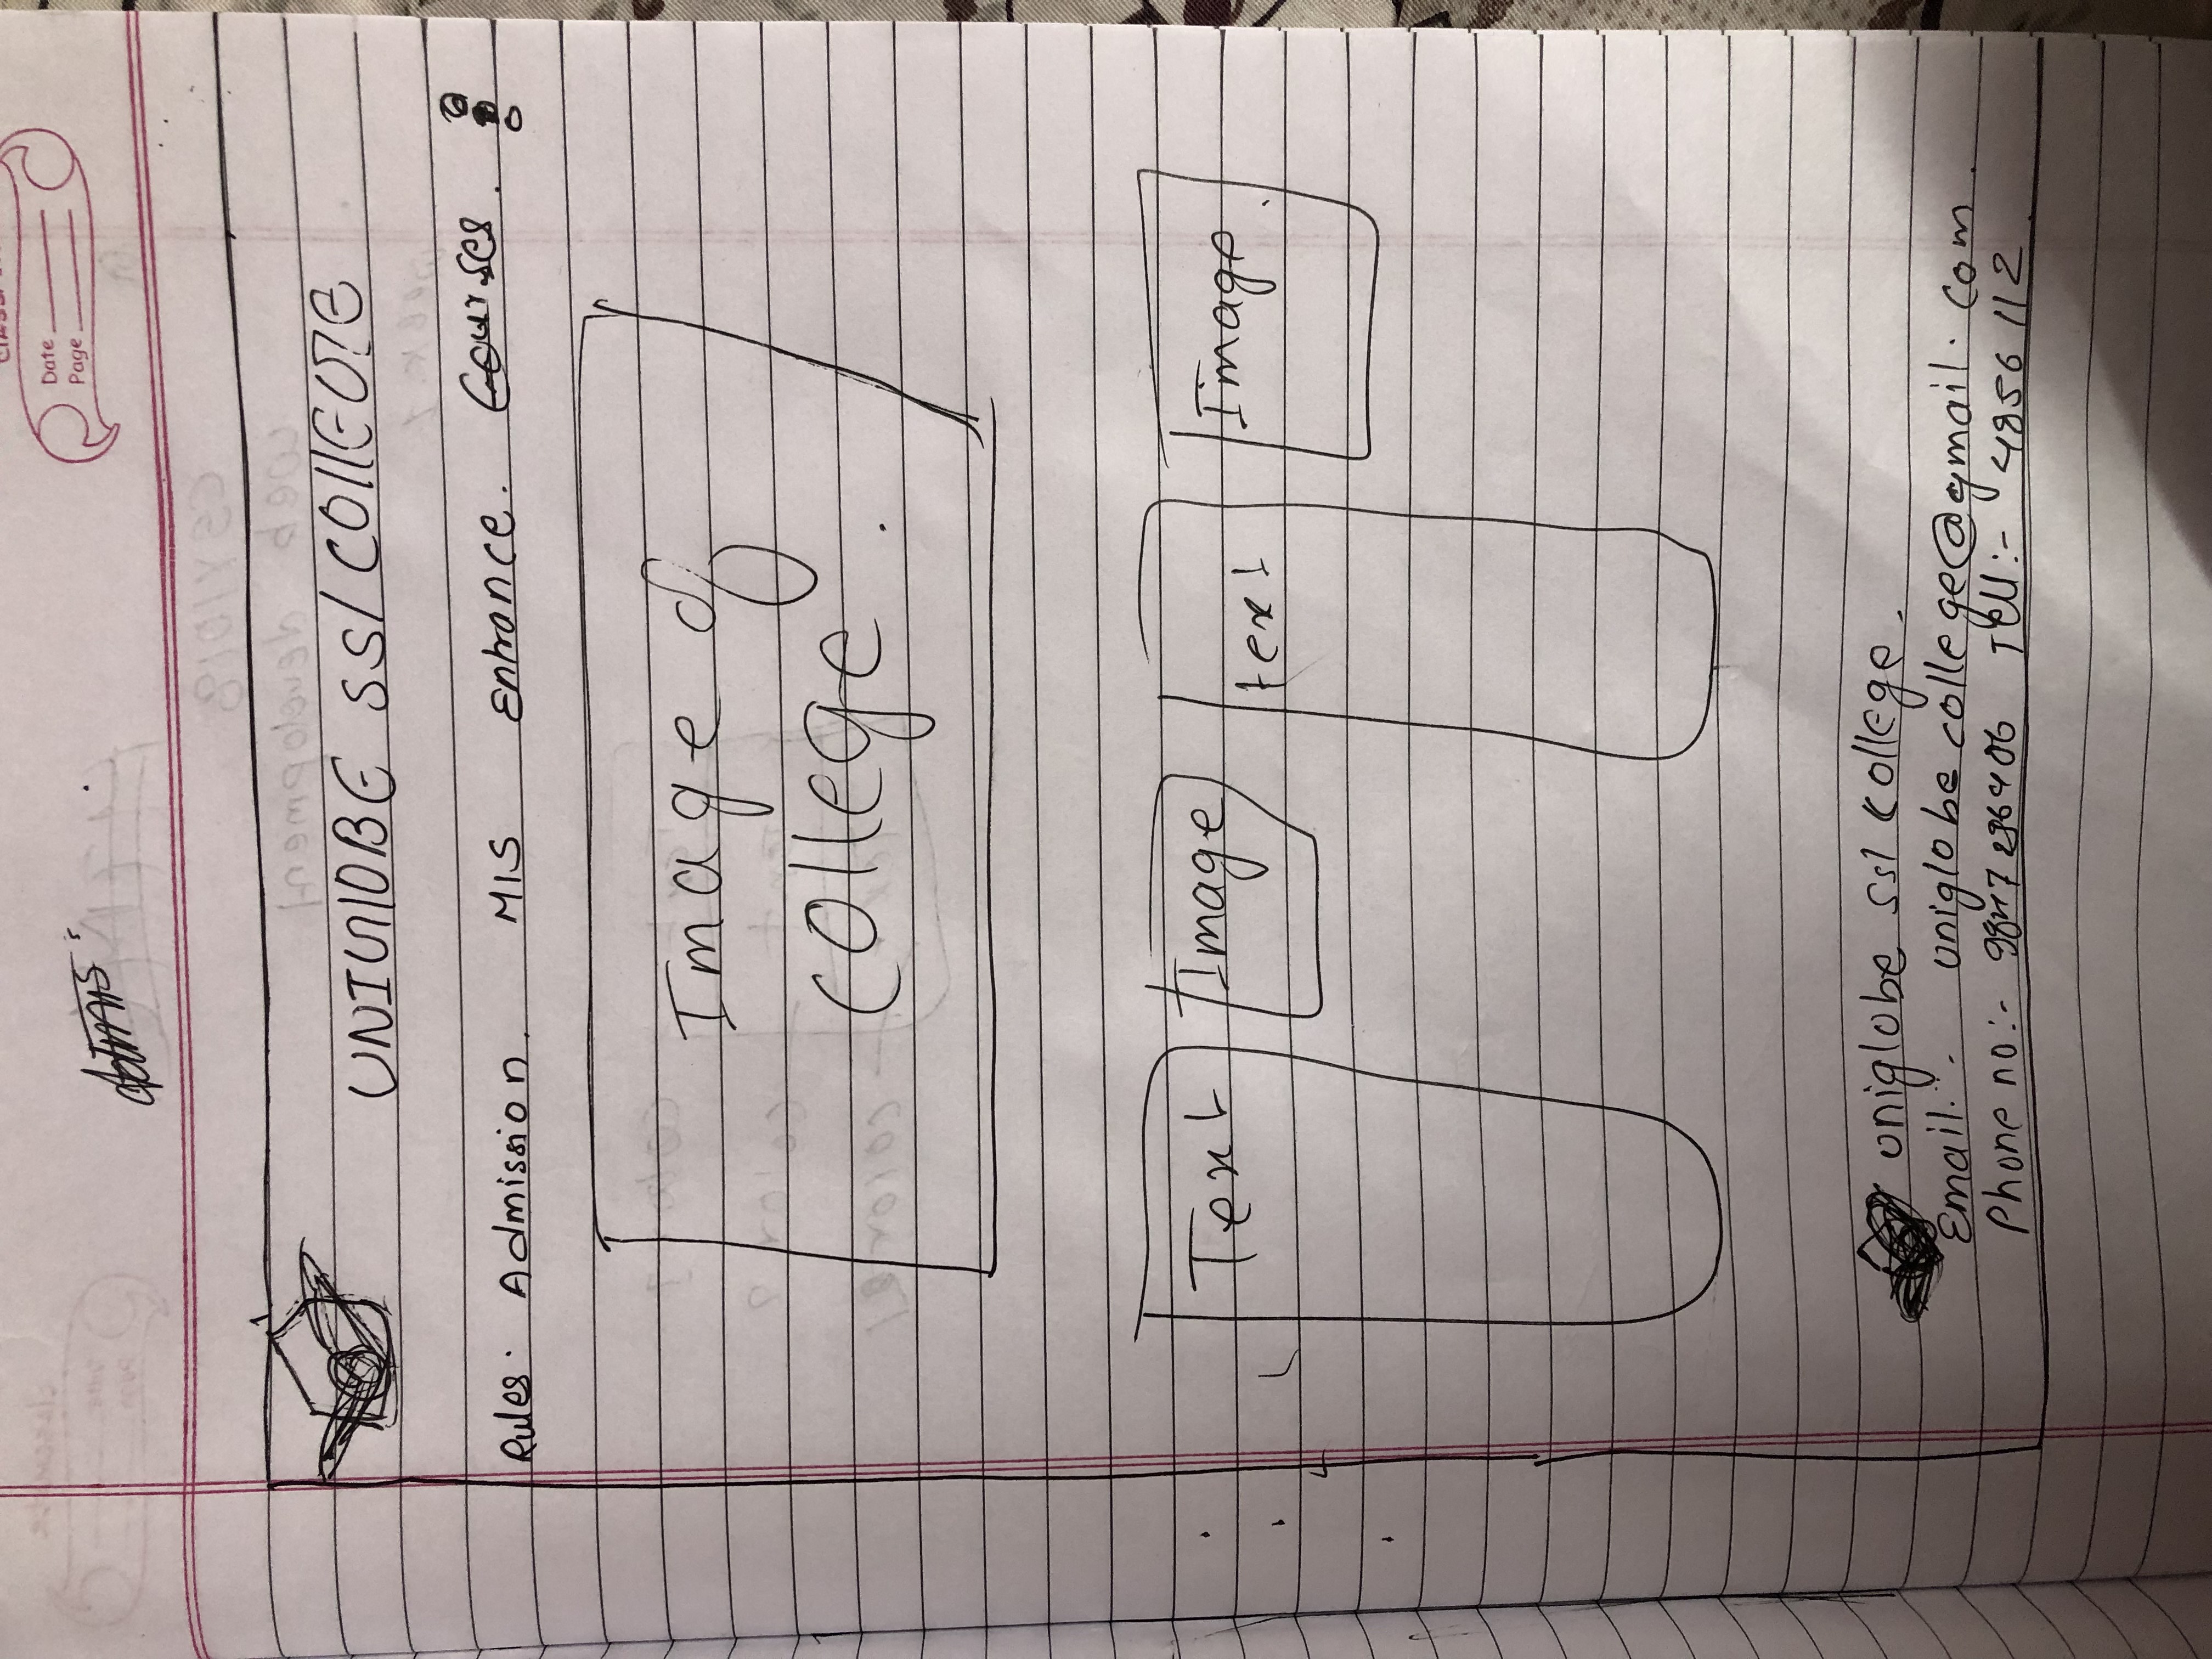 Date
Page
UNIGlOBE SSl COllEGE
Rules. Admission. MIS Entrance. Courses.
Image of
college.
Text Image text Image.
uniglobe ssl college.
Email:. uniglobe college@gmail.com.
Phone no:- Tell:- 4856112